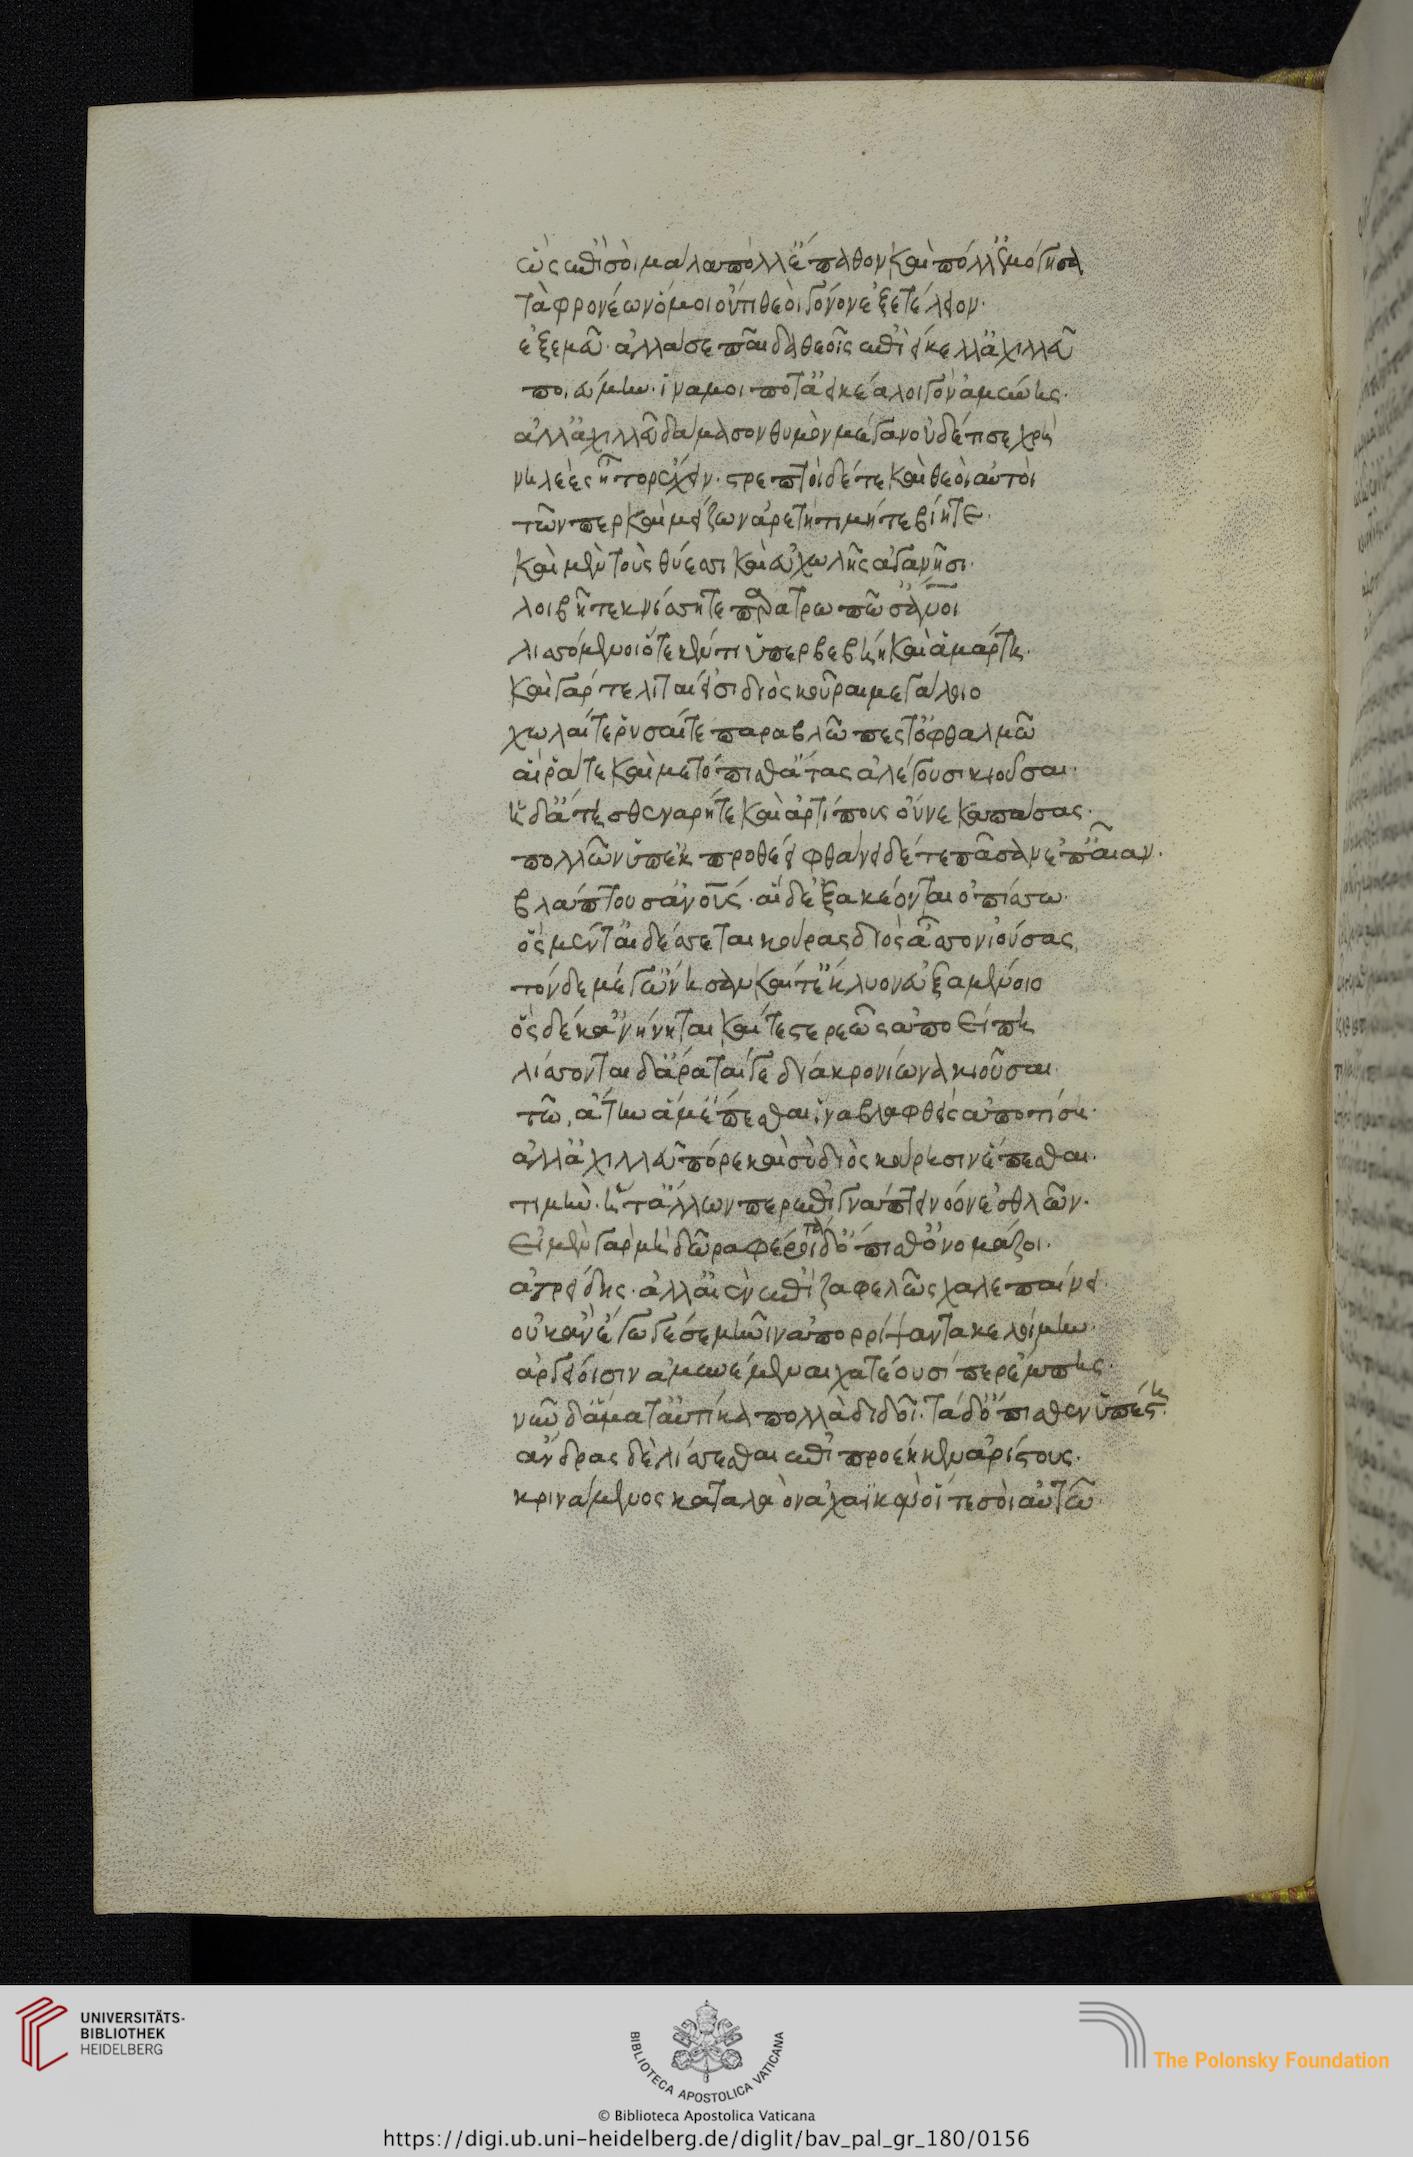 ὣς ἐπὶ σοὶ μάλα πόλλ' ἔπαθον καὶ πόλλ' ἐμόγησα
τὰ φρονέων ὅ μοι οὔτι θεοὶ γόνον ἐξετέλειον
ἐξ ἐμεῦ· ἀλλά σε παῖδα θεοῖς ἐπιείκελ' ἀχιλλεῦ
ποιεύμην· ἵνα μοί ποτ' ἀεικέα λοιγὸν ἀμύνῃς·
ἀλλ' ἀχιλλεῦ δάμασον θυμὸν μέγαν οὐδέ τι σε χρὴ
νηλεὲς ἦτορ ἔχειν· στρεπτοὶ δέ τε καὶ θεοὶ αὐτοὶ
τῶν περ καὶ μείζων ἀρετὴ τιμή τε βίη τε·
καὶ μὲν τοὺς θυέεσσι καὶ εὐχωλῇς ἀγανῇσι·
λοιβῇ τε κνίσσῃ τε παρατρωπῶσ' ἄνθρωποι
λισσόμενοι ὅτε κέν τις ὑπερβήῃ καὶ ἁμάρτῃ·
καὶ γάρ τε λιταί εἰσι διὸς κοῦραι μεγάλοιο
χωλαί τε ῥυσαί τε παραβλῶπές τ' ὀφθαλμῶ
αἵ ῥά τε καὶ μετόπισθ' ἄτας ἀλέγουσι κιοῦσαι·
ἡ δ' ἄτη σθεναρή τε καὶ ἀρτίπους οὕνεκα πάσας·
πολλὸν ὑπεκπροθέει φθάνει δέ τε πᾶσαν ἐπ' αἶαν·
βλάπτουσ' ἀνθρώπους· αἱ δ' ἐξακέονται ὀπίσσω·
ὃς μέν τ' αἰδέσεται κούρας διὸς ἆσσον ἰούσας
τόνδε μέγ' ὤνησαν καί τ' ἔκλυον εὐξαμένοιο
ὃς δέ κ' ἀνήνηται καί τε στερεῶς ἀποείπῃ
λίσσονται δ' ἄρα ταί γε δία κρονίωνα κιοῦσαι·
τῶ ἄτην ἅμ' ἕπεσθαι ἵνα βλαφθεὶς ἀποτίσῃ·
ἀλλ' ἀχιλλεῦ πόρε καὶ σὺ διὸς κούρῃσιν ἕπεσθαι·
τιμήν· ἥ τ' ἄλλων περ ἐπιγνάμπτει νόον ἐσθλῶν·
εἰ μὲν γὰρ μὴ δῶρα φέροι τὰ δ' ὄπισθ' ὀνομάζοι·
ἀτρείδης· ἀλλ' αἰὲν ἐπιζαφελῶς χαλεπαίνει·
οὐκ ἂν ἔγωγέ σε μῆνιν ἀπορρίψαντα κελοίμην·
ἀργείοισιν ἀμυνέμεναι χατέουσί περ ἔμπης·
νῦν δ' ἅμα τ' αὐτίκα πολλὰ διδοῖ· τὰ δ' ὄπισθεν ὑπέστη·
ἄνδρας δὲ λίσσεσθαι ἐπιπροέηκεν ἀρίστους·
κρινάμενος κατὰ λαὸν ἀχαϊκὸν οἵ τε σοὶ αὐτῶ
UNIVERSITÄTS-
BIBLIOTHEK
HEIDELBERG
BIBLIOTECA APOSTOLICA VATICANA
The Polonsky Foundation
© Biblioteca Apostolica Vaticana
https://digi.ub.uni-heidelberg.de/diglit/bav_pal_gr_180/0156